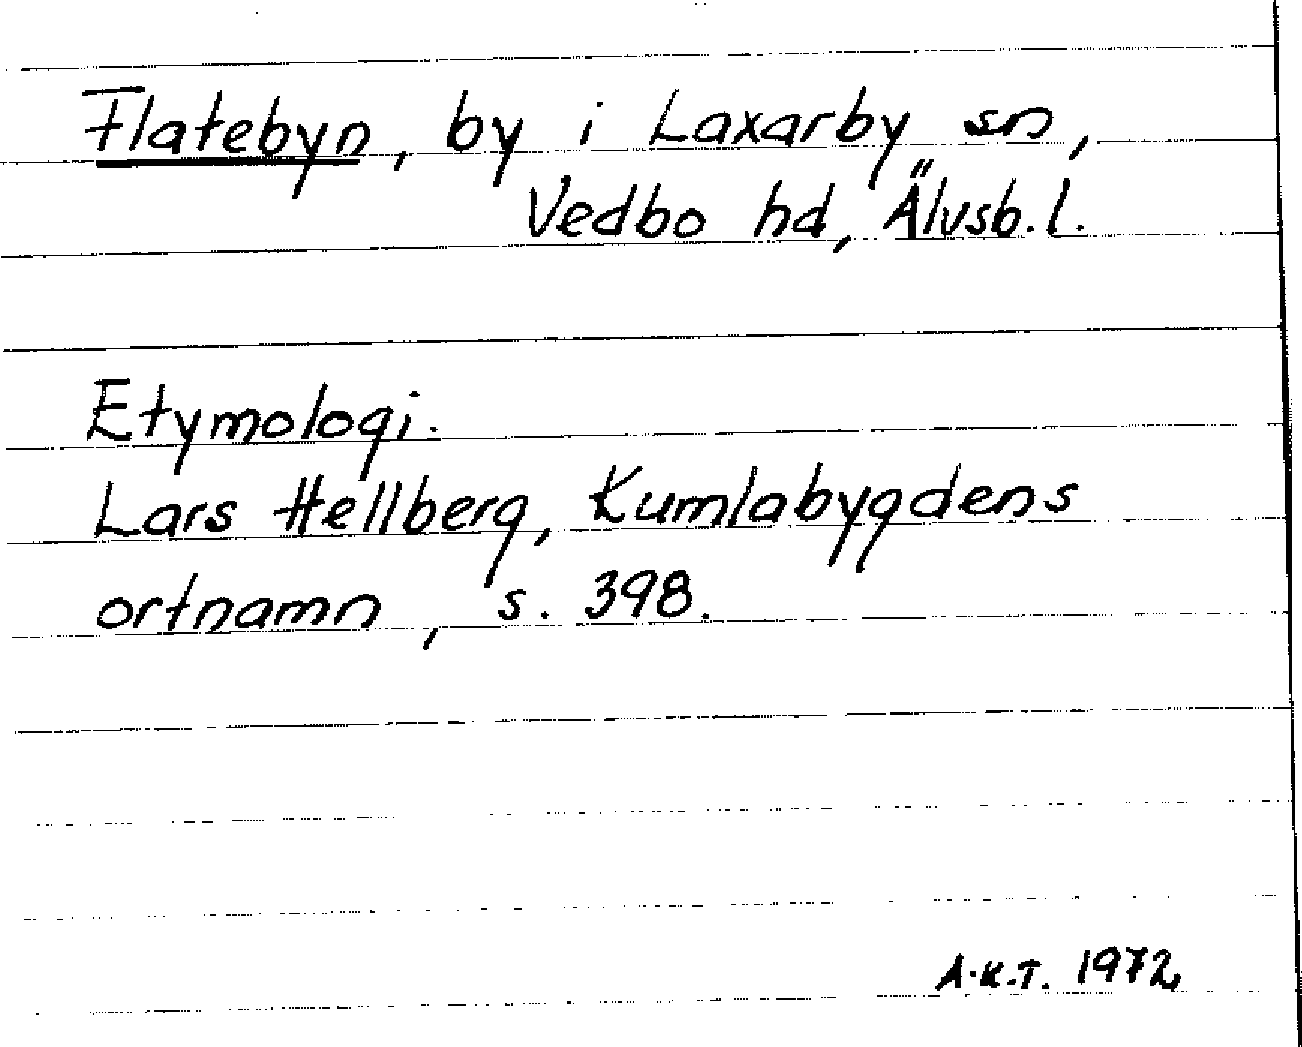 Flatebyn, by i Laxarby sn,
Vedbo hd, Älvsb. l.
Etymologi.
Lars Hellberg, Kumlabygdens
ortnamn, s. 398.
A.K.T. 1972